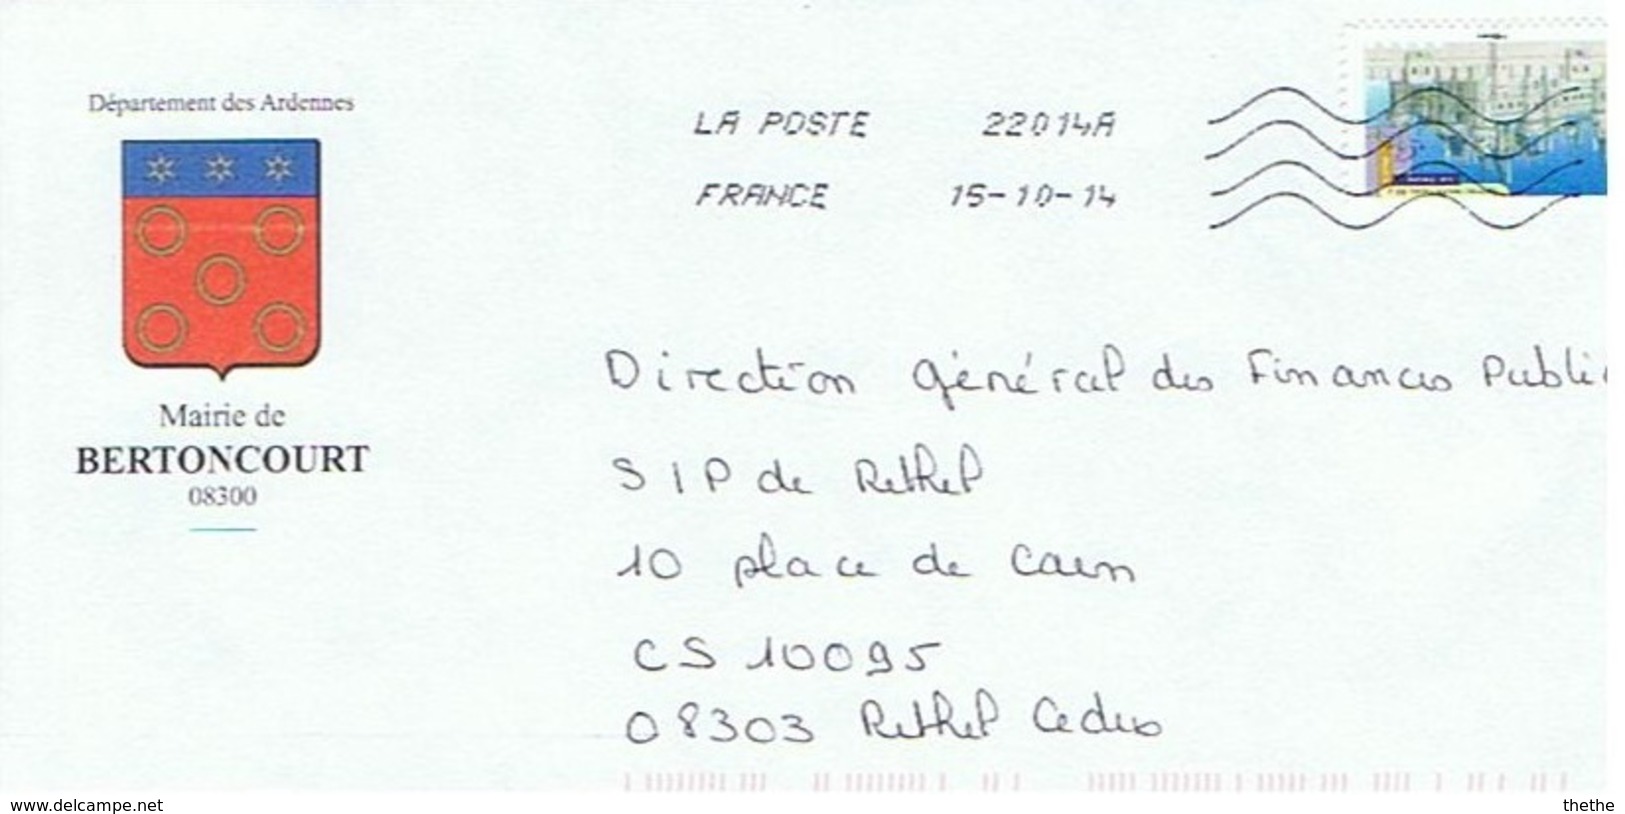 Département des Ardennes
Mairie de
BERTONCOURT
08300
LA POSTE 22014A
FRANCE 15-10-14
Direction général des Finances Publi
SIP de Rethel
10 place de Caen
CS 10095
08303 Rethel Cedex
www.delcampe.net
thethe